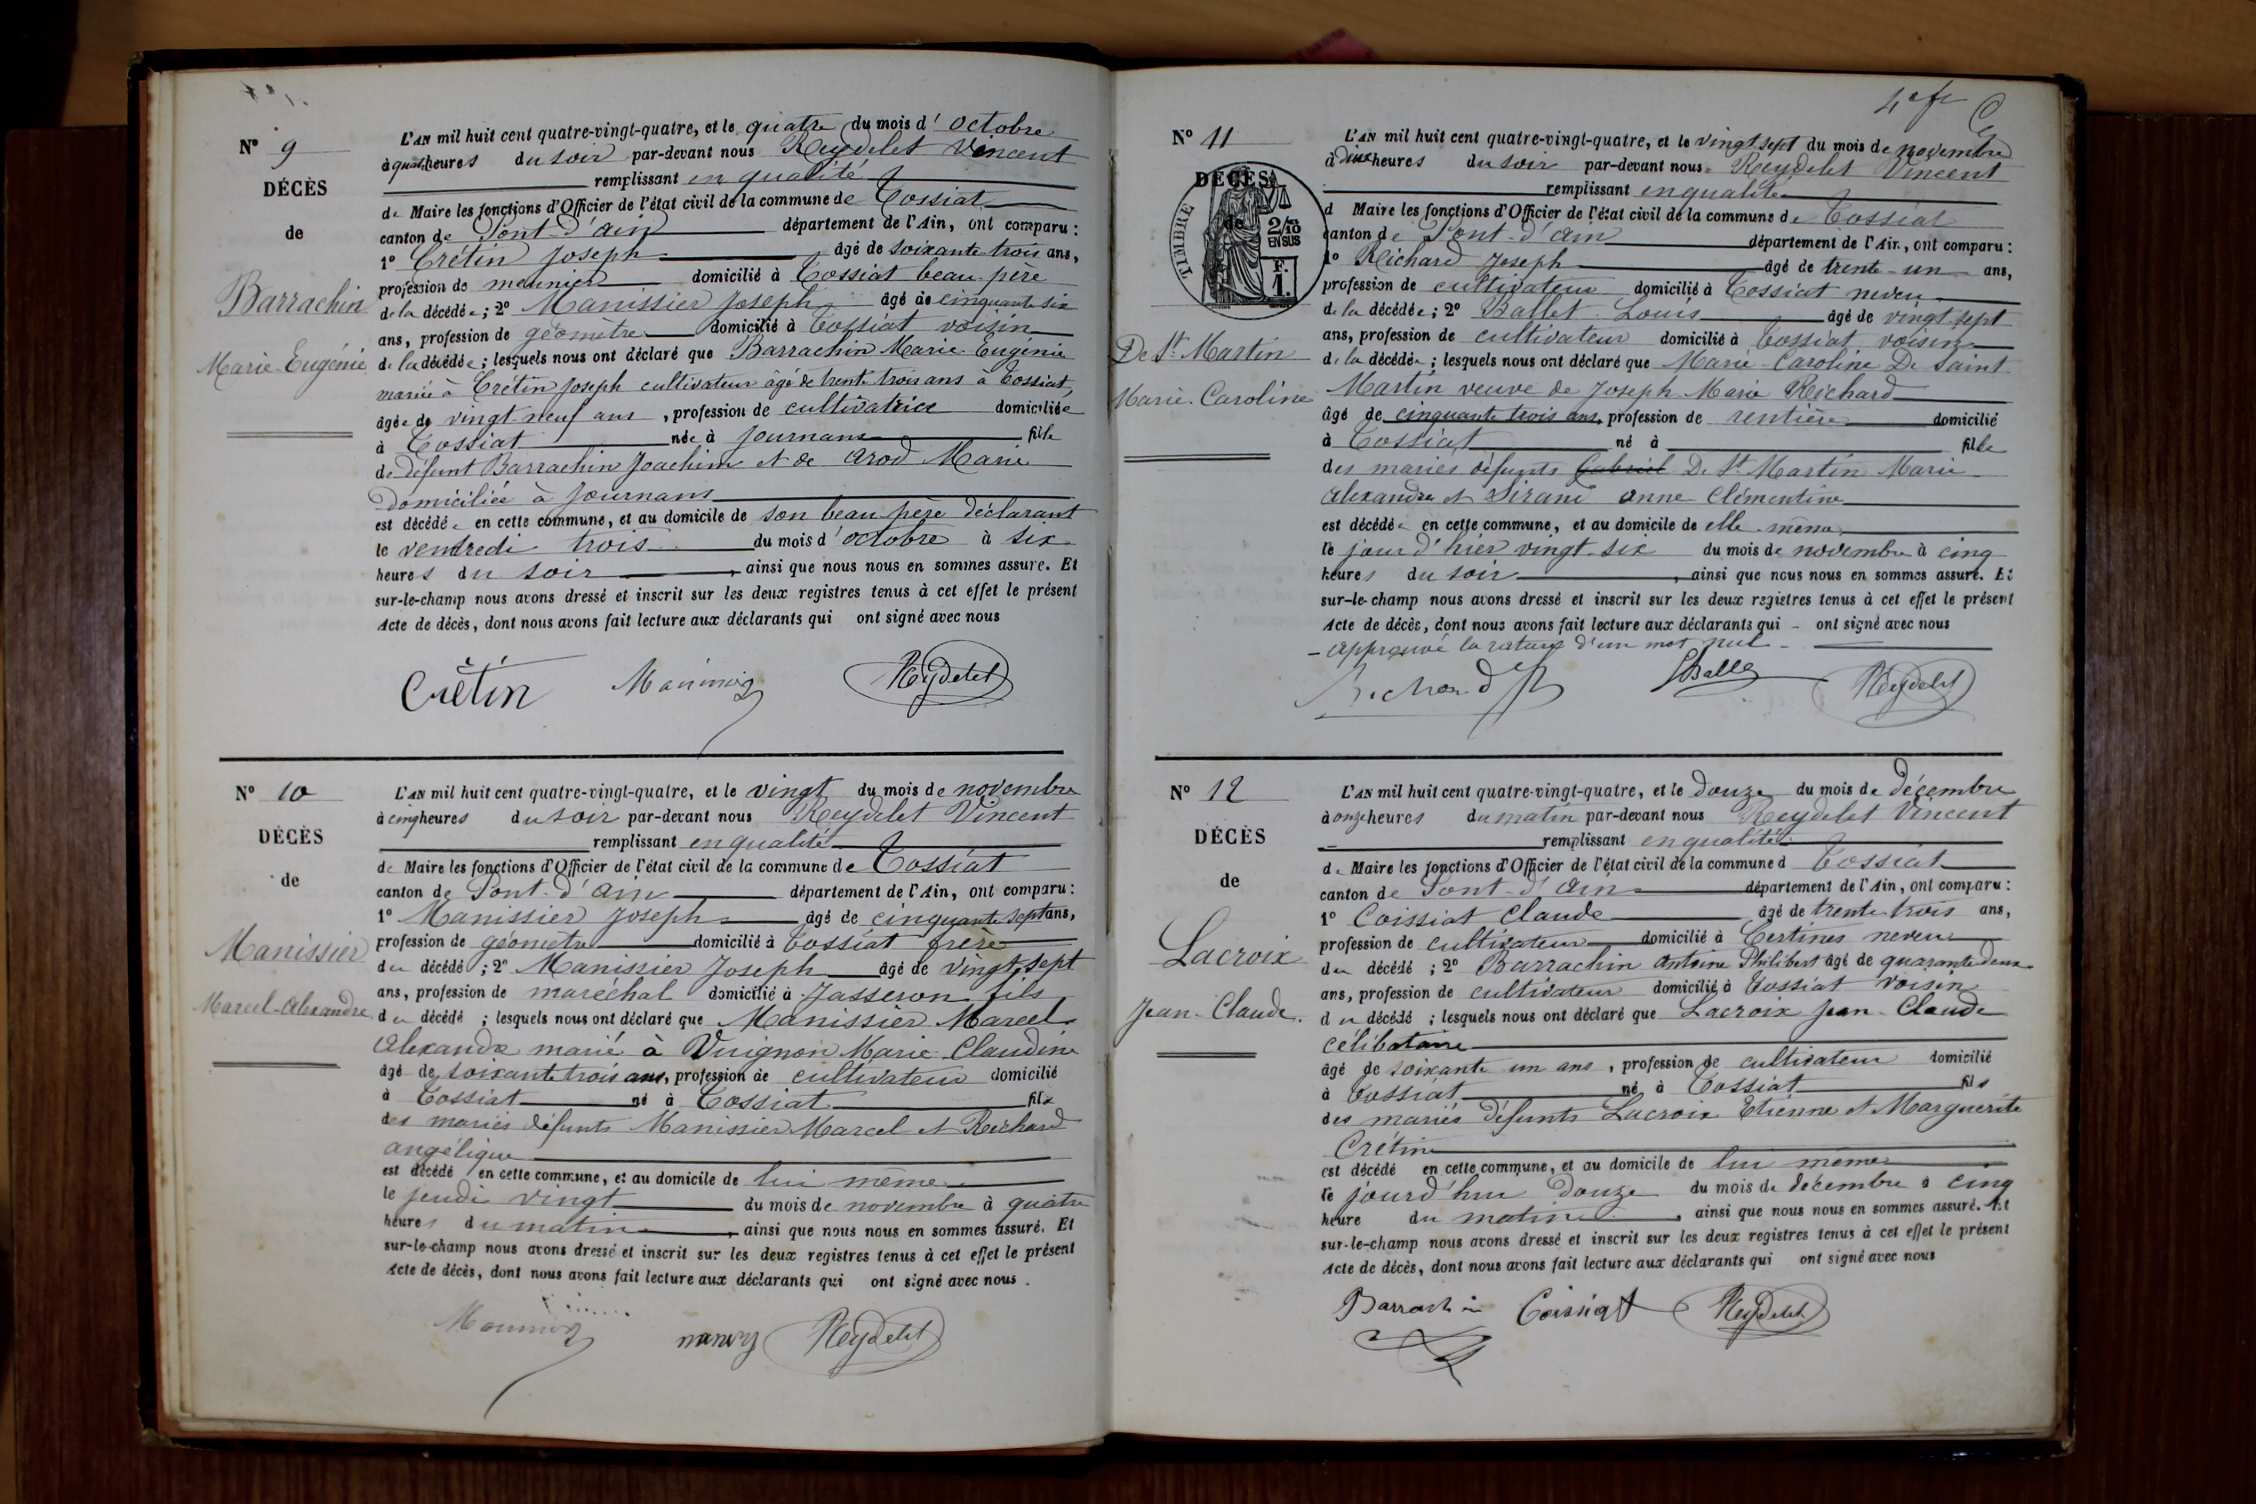 N° 9
DÉCÈS
de
Barrachin
Marie Eugénie
L'AN mil huit cent quatre-vingt-quatre, et le quatre du mois d' octobre
à quatre heures du soir par-devant nous Reydelet Vincent
remplissant en qualité
de Maire les fonctions d'Officier de l'état civil de la commune de Tossiat
canton de Pont d'ain département de l'Ain, ont comparu :
1° Crétin Joseph âgé de soixante trois ans,
profession de meunier domicilié à Tossiat beau père
de la décédée ; 2° Manissier Joseph âgé de cinquante six
ans, profession de géometre domicilié à Tossiat voisin
de la décédée ; lesquels nous ont déclaré que Barrachin Marie Eugénie
mariée à Crétin Joseph cultivateur âgé de trente trois ans à Tossiat,
âgée de vingt neuf ans , profession de cultivatrice domiciliée
à Tossiat née à Journans fille
de défunt Barrachin Joachim et de Arod Marie
domiciliée à Journans
est décédée en cette commune, et au domicile de son beau père déclarant
le vendredi trois du mois d' octobre à six
heures du soir , ainsi que nous nous en sommes assuré. Et
sur-le-champ nous avons dressé et inscrit sur les deux registres tenus à cet effet le présent
Acte de décès, dont nous avons fait lecture aux déclarants qui ont signé avec nous
Crétin Reydelet
N° 10
DÉCÈS
de
Manissier
Marcel-Alexandre
L'AN mil huit cent quatre-vingt-quatre, et le vingt du mois de novembre
à cinq heures du soir par-devant nous Reydelet Vincent
remplissant en qualité
de Maire les fonctions d'Officier de l'état civil de la commune de Tossiat
canton de Pont-d'ain département de l'Ain, ont comparu :
1° Manissier Joseph âgé de cinquante sept ans,
profession de géometre domicilié à Tossiat frère
du décédé ; 2° Manissier Joseph âgé de vingt sept
ans, profession de maréchal domicilié à Jasseron fils
du décédé ; lesquels nous ont déclaré que Manissier Marcel
Alexandre marié à Marie Claudine
âgé de soixante trois ans, profession de cultivateur domicilié
à Tossiat né à Tossiat fils
des mariés défunts Manissier Marcel et Richard
angélique
est décédé en cette commune, et au domicile de lui même
le jeudi vingt du mois de novembre à quatre
heures du matin , ainsi que nous nous en sommes assuré. Et
sur-le-champ nous avons dressé et inscrit sur les deux registres tenus à cet effet le présent
Acte de décès, dont nous avons fait lecture aux déclarants qui ont signé avec nous .
Reydelet
N° 11
DÉCÈS
de
TIMBRE
2/10
EN SUS
F.
1.
De St Martin
Marie-Caroline
L'AN mil huit cent quatre-vingt-quatre, et le vingt sept du mois de novembre
à heures du soir par-devant nous Reydelet Vincent
remplissant en qualité
d Maire les fonctions d'Officier de l'état civil de la commune de Tossiat
canton de Pont-d'ain département de l'Ain, ont comparu :
1° Richard Joseph âgé de trente-un ans,
profession de cultivateur domicilié à Tossiat neveu
de la décédée ; 2° Ballet Louis âgé de vingt sept
ans, profession de cultivateur domicilié à Tossiat voisin
de la décédée ; lesquels nous ont déclaré que Marie Caroline De Saint
Martin veuve de Joseph Marie Richard
âgé de cinquante trois ans, profession de rentière domicilié
à Tossiat né à fille
des mariés défunts Gabriel De St Martin Marie
Alexandre et anne Clémentine
est décédée en cette commune, et au domicile de elle même
le jour d'hier vingt-six du mois de novembre à cinq
heures du soir , ainsi que nous nous en sommes assuré. Et
sur-le-champ nous avons dressé et inscrit sur les deux registres tenus à cet effet le présent
Acte de décès, dont nous avons fait lecture aux déclarants qui - ont signé avec nous
- approuvé la rature d'un mot nul -
Richard Reydelet
N° 12
DÉCÈS
de
Lacroix
Jean-Claude.
L'AN mil huit cent quatre-vingt-quatre, et le douze du mois de décembre
à onze heures du matin par-devant nous Reydelet Vincent
remplissant en qualité
de Maire les fonctions d'Officier de l'état civil de la commune d Tossiat
canton de Pont-d'ain département de l'Ain, ont comparu :
1° Coissiat Claude âgé de trente trois ans,
profession de cultivateur domicilié à Certines neveu
du décédé ; 2° Barrachin Antoine Philibert âgé de quarante deux
ans, profession de cultivateur domicilié à Tossiat voisin
du décédé ; lesquels nous ont déclaré que Lacroix Jean-Claude
célibataire
âgé de soixante un ans , profession de cultivateur domicilié
à Tossiat né à Tossiat fils
des mariés défunts Lacroix Etienne et Marguerite
Crétin
est décédé en cette commune, et au domicile de lui même
le jourd'hui douze du mois de décembre à cinq
heure du matin , ainsi que nous nous en sommes assuré. Et
sur-le-champ nous avons dressé et inscrit sur les deux registres tenus à cet effet le présent
Acte de décès, dont nous avons fait lecture aux déclarants qui ont signé avec nous
Barrachin Coissiat Reydelet